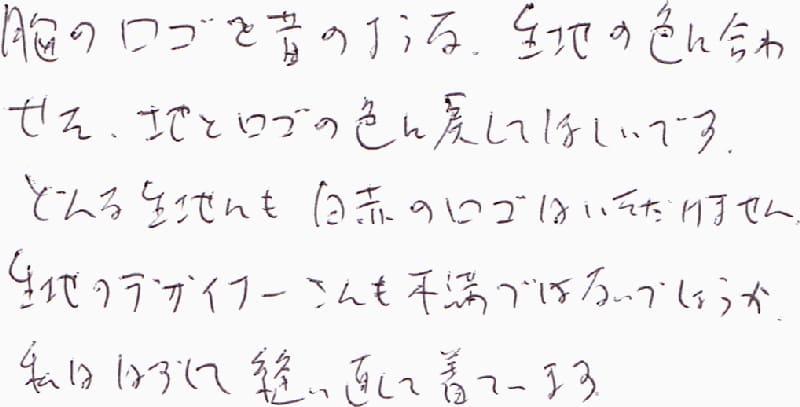 胸のロゴを昔のような、生地の色に合わ
せた、地とロゴの色に戻してほしいです。
どんな生地にも白赤のロゴはいただけません。
生地のデザイナーさんも不満ではないでしょうか。
私ははずして縫い直して着ています